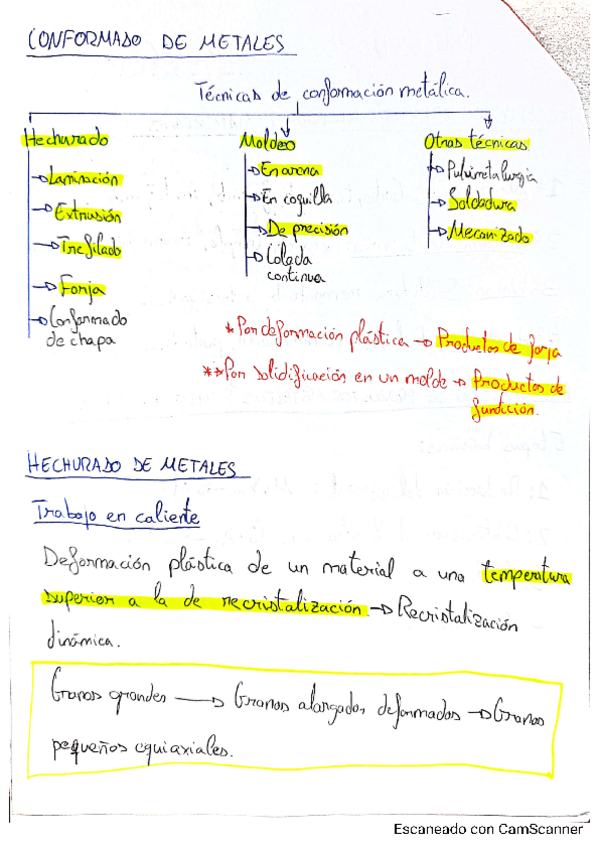 CONFORMADO DE METALES
Técnicas de conformación metálica.
Hechurado
Moldeo
Otras técnicas
→Laminación
→Extrusión
→Trefilado
→Forja
→Conformado
de chapa
→En arena
→En coquilla
→De precisión
→Colada
continua
→Pulvimetalurgia
→Soldadura
→Mecanizado
*Por deformación plástica → Productos de forja
**Por solidificación en un molde → Productos de
fundición.
HECHURADO DE METALES
Trabajo en caliente
Deformación plástica de un material a una temperatura
superior a la de recristalización → Recristalización
dinámica.
Granos grandes → Granos alargados deformados → Granos
pequeños equiaxiales.
Escaneado con CamScanner